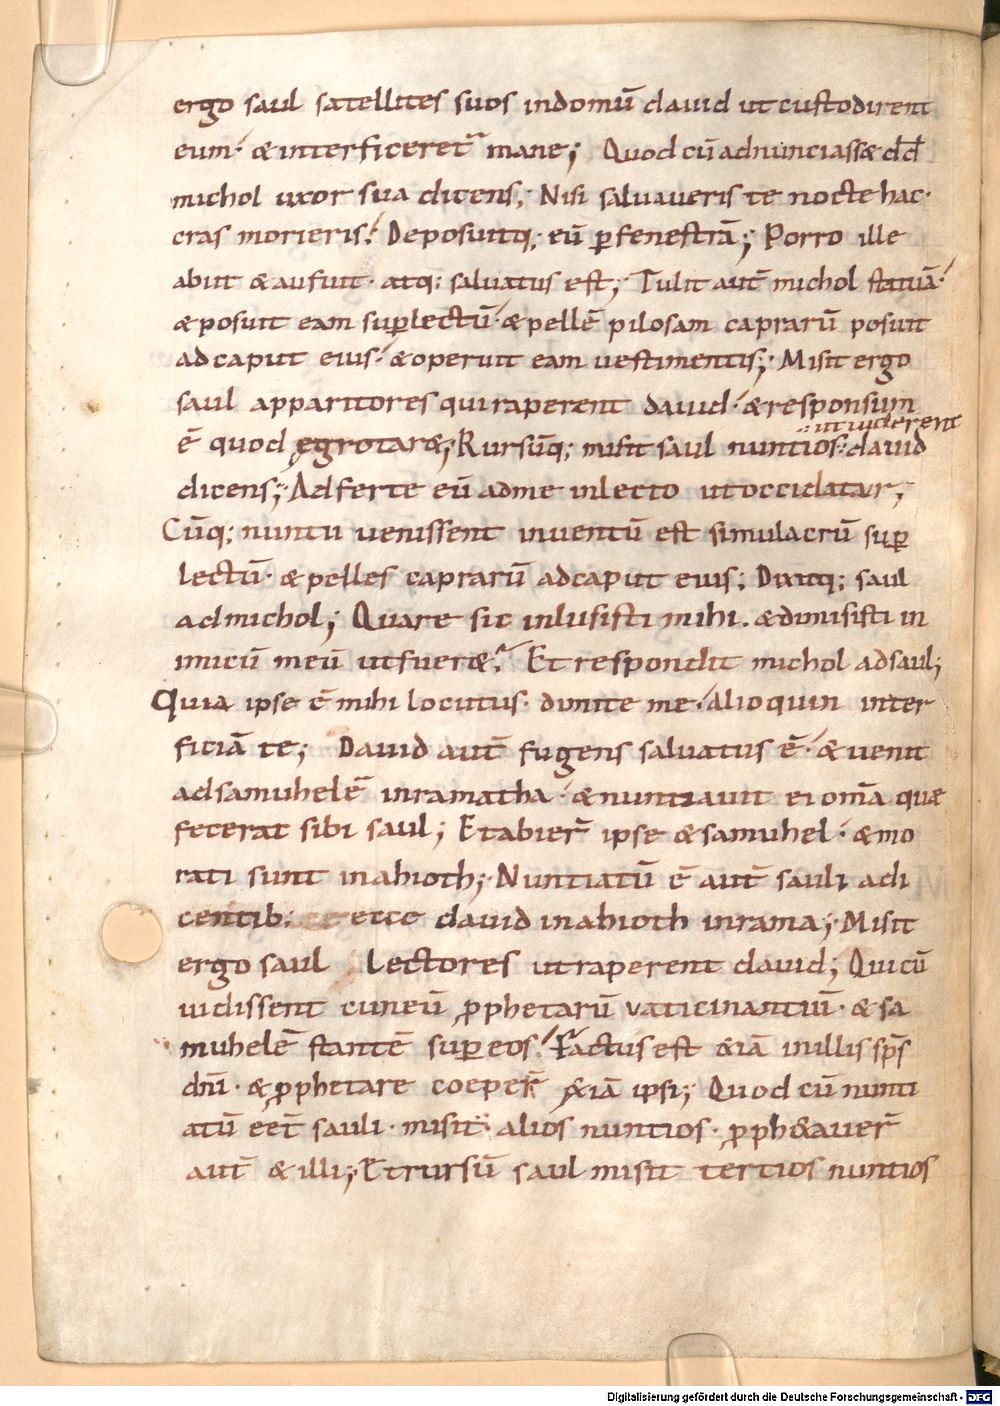 ergo saul satellites suos indomū dauid ut custodirent
eum· & interficeret᷑ mane; Quod cū adnunciass& dd̄
michol uxor sua dicens; Nisi saluaueris te nocte hac·
cras morieris; Deposuitq; eū p̱ fenestrā; Porro ille
abiit & aufugit· atq; saluatus est; Tulit aut̄ michol statuā·
& posuit eam sup̱ lectū· & pellē pilosam caprarū posuit
ad caput eius· & operuit eam uestimentis; Misit ergo
saul apparitores qui raperent dauid· & responsum
ut uiderent
ē quod ęgrotar&; Rursūq; misit saul nuntios dauid
dicens; Adferte eū adme inlecto ut occidatur;
Cūq; nuntii uenissent inuentū est simulacrū sup̱
lectū· & pelles caprarū ad caput eius; Dixitq; saul
ad michol; Quare sic inlusisti mihi· & dimisisti in
imicū meū ut fuger&; Et respondit michol ad saul;
Quia ipse ē mihi locutus· dimitte me· alioquin inter
ficiā te; Dauid aut̄ fugiens saluatus ē· & uenit
ad samuhelē inramatha· & nuntiauit ei om̄a quæ
fecerat sibi saul; Et abier̄ ipse & samuhel· & mo
rati sunt inahioth; Nuntiatū ē aut̄ sauli a di
centib; ecce dauid inahioth inrama; Misit
ergo saul lectores ut raperent dauid; Qui cū
uidissent cuneū p̱phetarū uaticinantiū· & sa
muhelē stantē sup̱ eos; Factus est &iā inillis sp̄s
dn̄i· & p̱phetare coeper̄ &iā ipsi; Quod cū nunti
atū eēt sauli· misit alios nuntios· p̱ph&auer̄
aut̄ & illi; Et rursū saul misit tertios nuntios
Digitalisierung gefördert durch die Deutsche Forschungsgemeinschaft - DFG